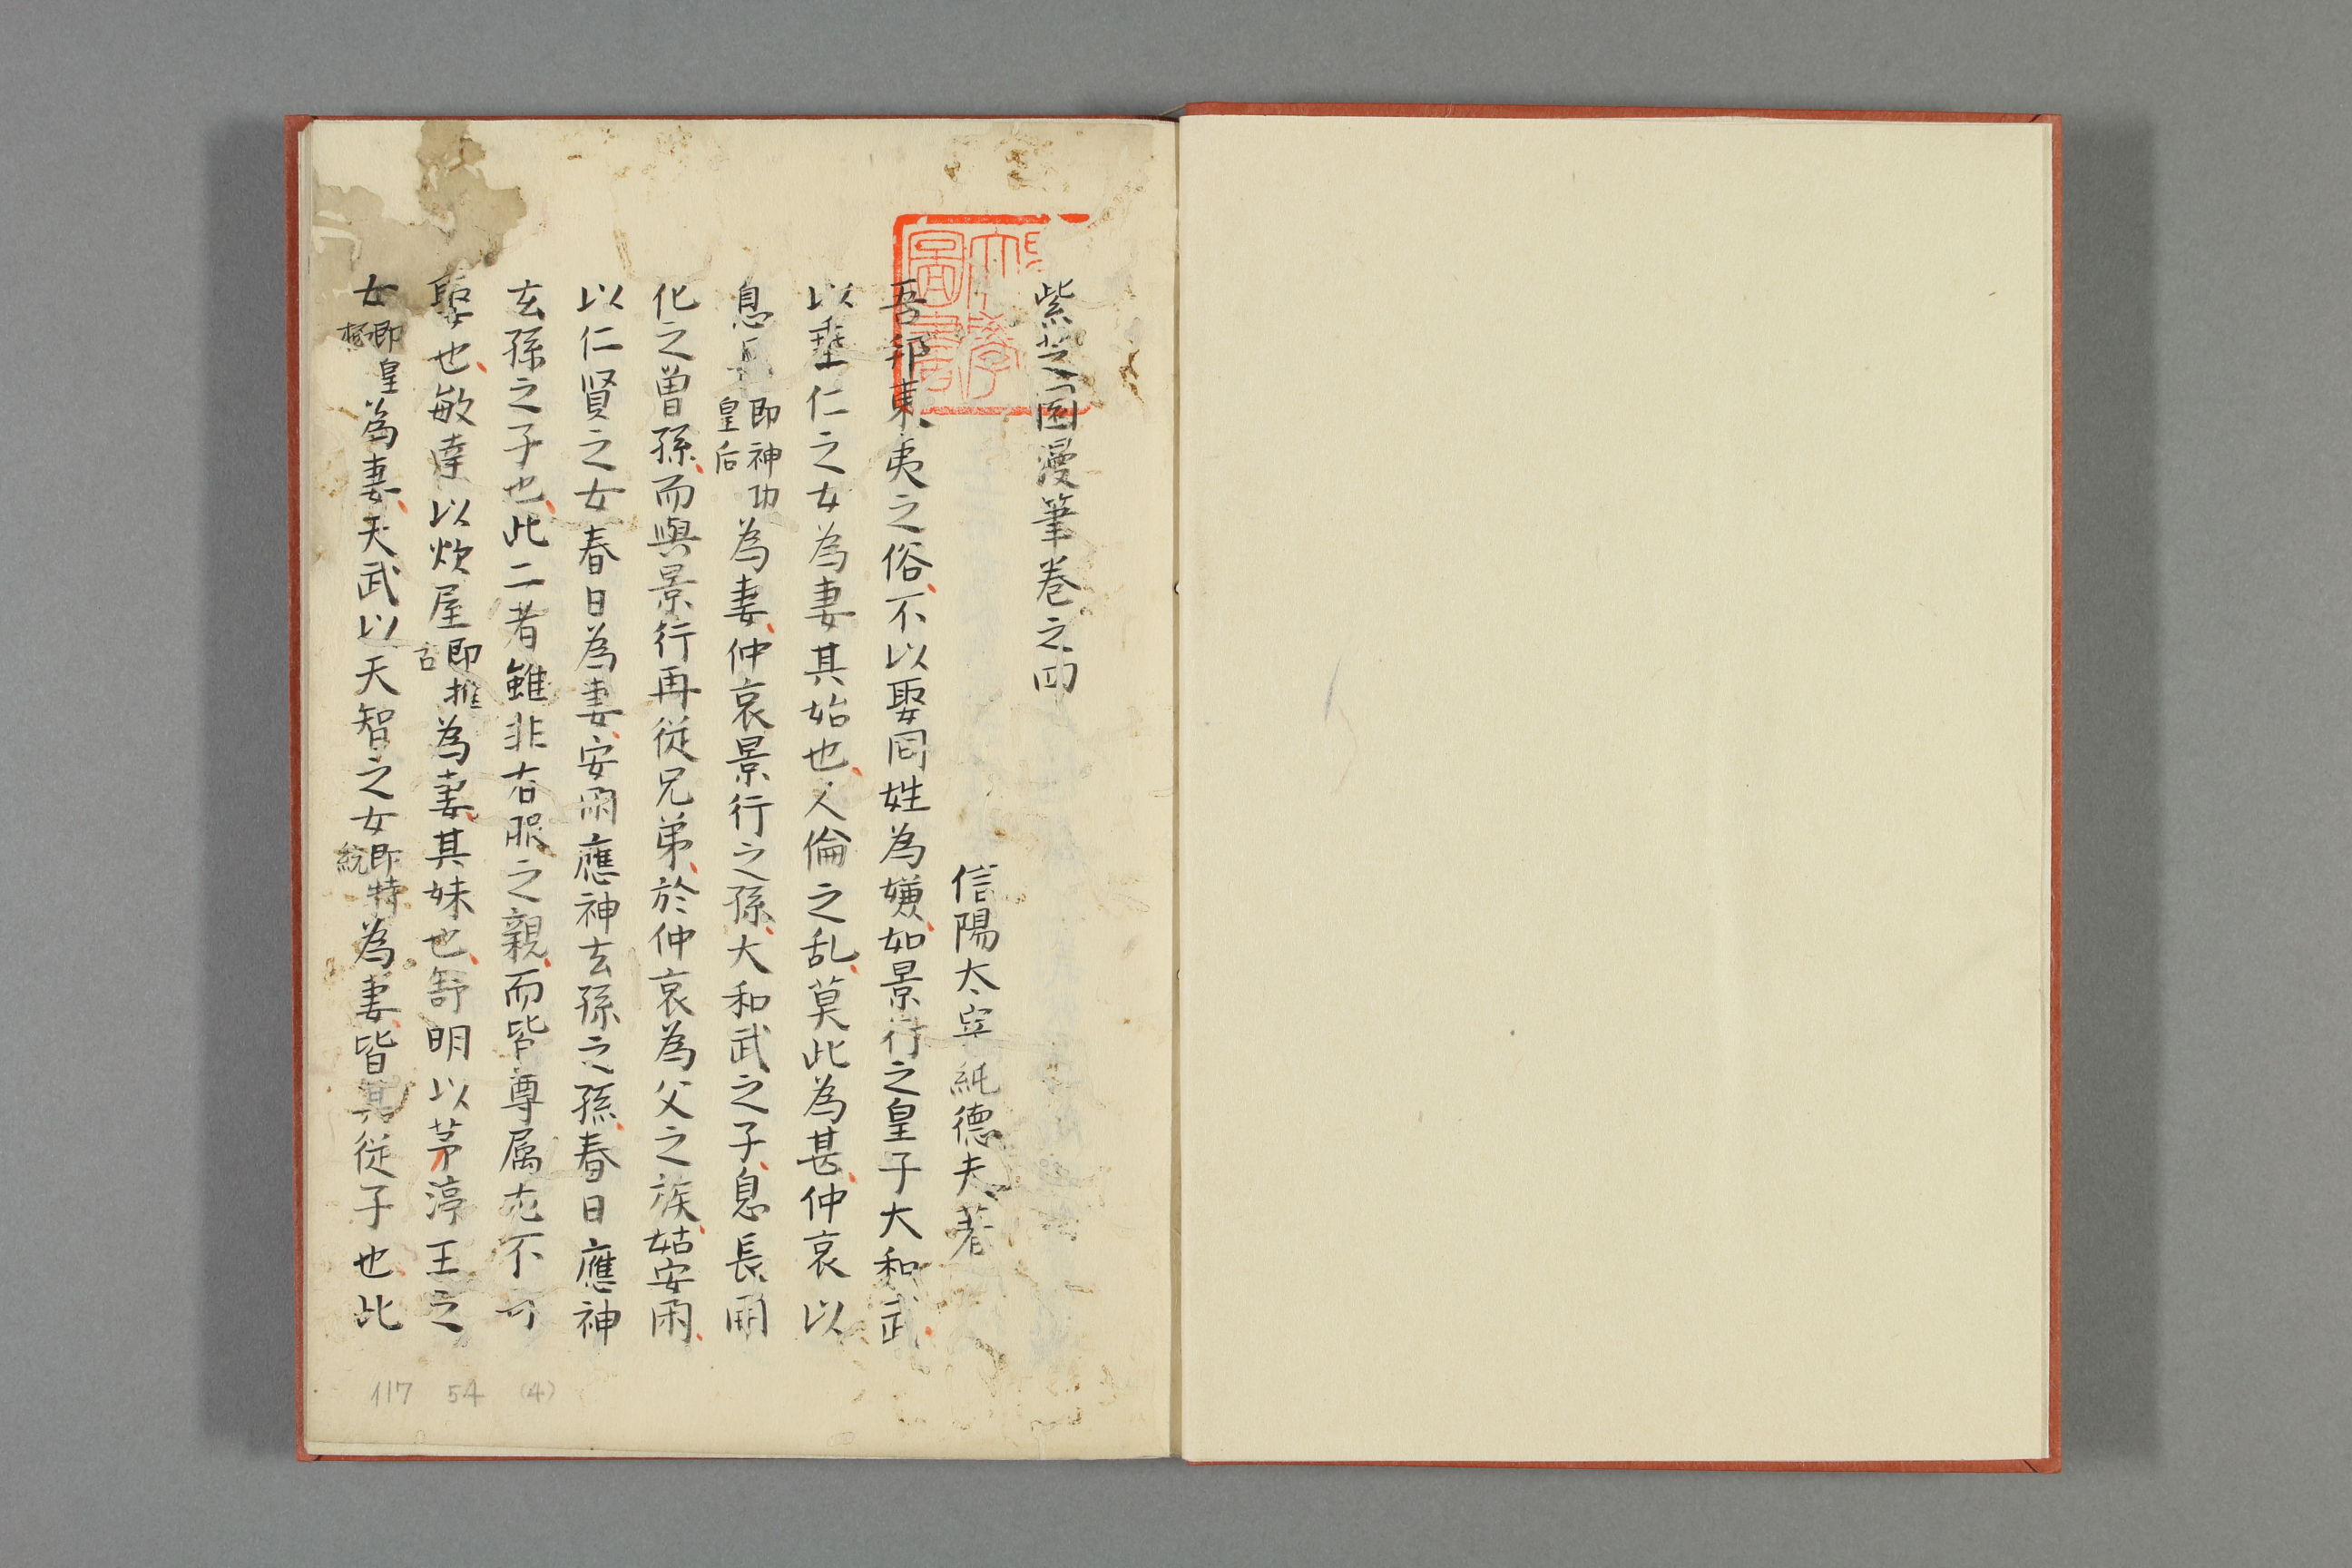 紫芝園漫筆卷之四
信陽太宰純德夫著
吾邦東夷之俗不以娶同姓為嫌如景行之皇子大和武
以垂仁之女為妻其始也人倫之乱莫此為甚仲哀以
息長即神功皇后為妻仲哀景行之孫大和武之子息長開
化之曽孫而與景行再従兄弟於仲哀為父之族姑安閑
以仁賢之女春日為妻安閑應神玄孫之孫春日應神
玄孫之子也此二者雖非右服之親而皆尊属也不可
娶也敏達以炊屋即推古為妻其妹也舒明以茅渟王之
女即皇極為妻天武以天智之女即持統為妻皆其従子也此
117 54 (4)